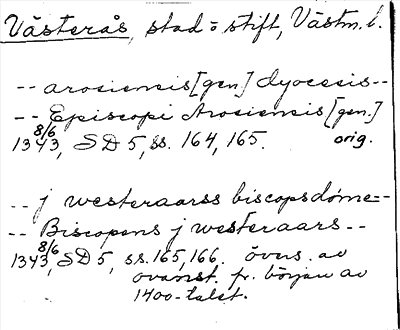 Västerås, stad o stift, Västm. l.
-- arosiensis [gen.] dyocesis --
-- Episcopi Arosiensis [gen.]
1343 8/6, SD 5, ss. 164, 165. orig.
-- j westeraarss biscopsdöme --
-- Biscopens j westeraars --
1343 8/6, SD 5, ss. 165, 166. övers. av
ovanst. fr. början av
1400-talet.